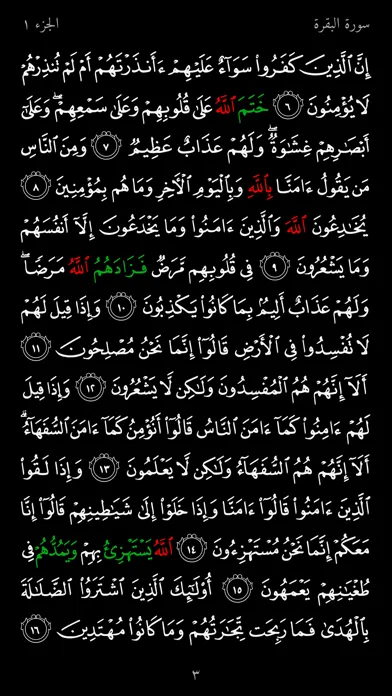 سورة البقرة
الجزء ١
إِنَّ ٱلَّذِينَ كَفَرُوا۟ سَوَآءٌ عَلَيْهِمْ ءَأَنذَرْتَهُمْ أَمْ لَمْ تُنذِرْهُمْ
لَا يُؤْمِنُونَ ٦ خَتَمَ ٱللَّهُ عَلَىٰ قُلُوبِهِمْ وَعَلَىٰ سَمْعِهِمْ ۖ وَعَلَىٰٓ
أَبْصَـٰرِهِمْ غِشَـٰوَةٌ ۖ وَلَهُمْ عَذَابٌ عَظِيمٌ ٧ وَمِنَ ٱلنَّاسِ
مَن يَقُولُ ءَامَنَّا بِٱللَّهِ وَبِٱلْيَوْمِ ٱلْـَٔاخِرِ وَمَا هُم بِمُؤْمِنِينَ ٨
يُخَـٰدِعُونَ ٱللَّهَ وَٱلَّذِينَ ءَامَنُوا۟ وَمَا يَخْدَعُونَ إِلَّآ أَنفُسَهُمْ
وَمَا يَشْعُرُونَ ٩ فِى قُلُوبِهِم مَّرَضٌ فَزَادَهُمُ ٱللَّهُ مَرَضًا ۖ
وَلَهُمْ عَذَابٌ أَلِيمٌۢ بِمَا كَانُوا۟ يَكْذِبُونَ ١٠ وَإِذَا قِيلَ لَهُمْ
لَا تُفْسِدُوا۟ فِى ٱلْأَرْضِ قَالُوٓا۟ إِنَّمَا نَحْنُ مُصْلِحُونَ ١١
أَلَآ إِنَّهُمْ هُمُ ٱلْمُفْسِدُونَ وَلَـٰكِن لَّا يَشْعُرُونَ ١٢ وَإِذَا قِيلَ
لَهُمْ ءَامِنُوا۟ كَمَآ ءَامَنَ ٱلنَّاسُ قَالُوٓا۟ أَنُؤْمِنُ كَمَآ ءَامَنَ ٱلسُّفَهَآءُ ۗ
أَلَآ إِنَّهُمْ هُمُ ٱلسُّفَهَآءُ وَلَـٰكِن لَّا يَعْلَمُونَ ١٣ وَإِذَا لَقُوا۟
ٱلَّذِينَ ءَامَنُوا۟ قَالُوٓا۟ ءَامَنَّا وَإِذَا خَلَوْا۟ إِلَىٰ شَيَـٰطِينِهِمْ قَالُوٓا۟ إِنَّا
مَعَكُمْ إِنَّمَا نَحْنُ مُسْتَهْزِءُونَ ١٤ ٱللَّهُ يَسْتَهْزِئُ بِهِمْ وَيَمُدُّهُمْ فِى
طُغْيَـٰنِهِمْ يَعْمَهُونَ ١٥ أُو۟لَـٰٓئِكَ ٱلَّذِينَ ٱشْتَرَوُا۟ ٱلضَّلَـٰلَةَ
بِٱلْهُدَىٰ فَمَا رَبِحَت تِّجَـٰرَتُهُمْ وَمَا كَانُوا۟ مُهْتَدِينَ ١٦
٣